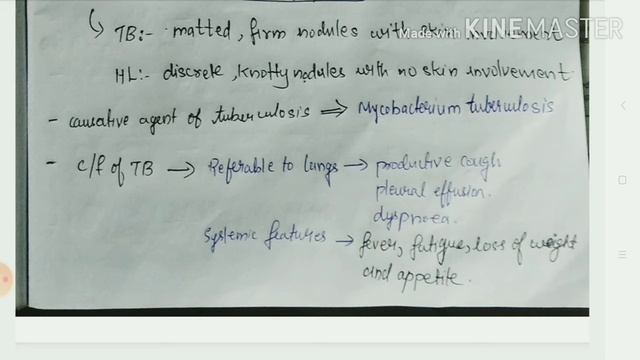 ↳ TB:- matted, firm nodules with skin involvement
Made with KINEMASTER
HL:- discrete, knotty nodules with no skin involvement.
- causative agent of tuberculosis ⇒ Mycobacterium tuberculosis
- c/f of TB → Referable to lungs → productive cough
pleural effusion.
dyspnoea.
Systemic features → fever, fatigue, loss of weight
and appetite.